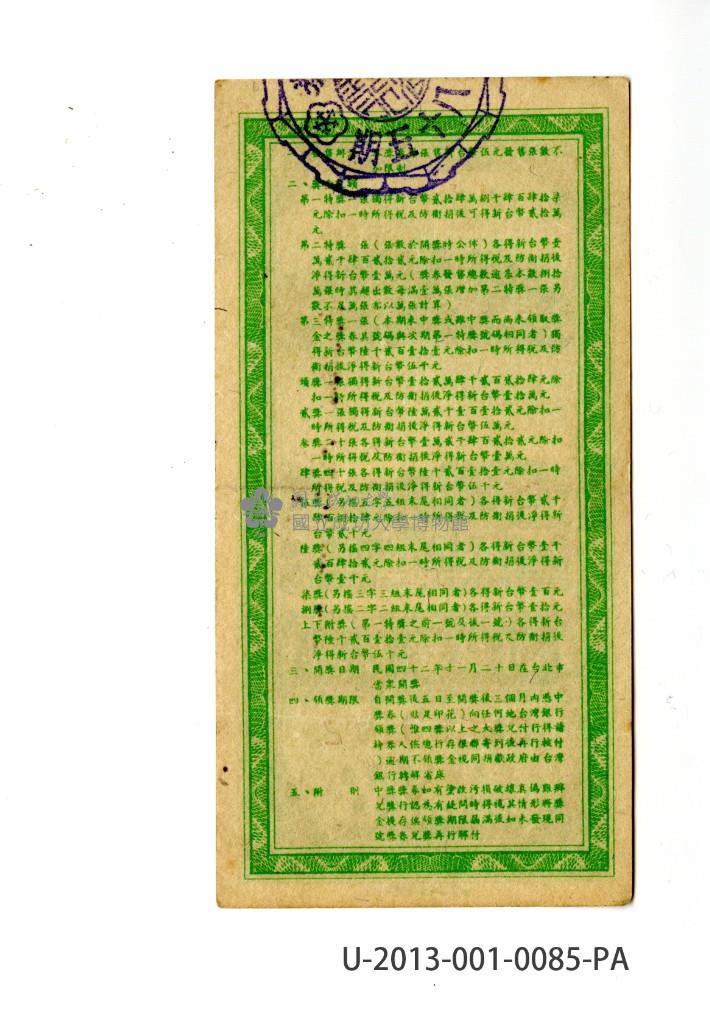 期五六八
售　張售新台幣伍元發售張數不
加限制
二、獎
第一特獎一張獨得新台幣貳拾肆萬捌千肆百肆拾柒
元除扣一時所得稅及防衛捐後可得新台幣貳拾萬
元
第二特獎　張(張數於開獎時公佈)各得新台幣壹
萬貳千肆百貳拾貳元除扣一時所得稅及防衛捐後
淨得新台幣壹萬元(獎券發售總數逾本數捌拾
萬張時其超出數每滿壹萬張增加第二特獎一張另
數不足萬張亦以萬張計算)
第三特獎一張(本期未中獎或雖中獎而尚未領取獎
金之獎券其號碼與次期第一特獎號碼相同者)獨
得新台幣陸千貳百壹拾壹元除扣一時所得稅及防
衛捐後淨得新台幣伍千元
頭獎一張獨得新台幣壹拾貳萬肆千貳百貳拾肆元除
扣一時所得稅及防衛捐後淨得新台幣壹拾萬元
貳獎一張獨得新台幣陸萬貳千壹百壹拾貳元除扣一
時所得稅及防衛捐後淨得新台幣伍萬元
叁獎二十張各得新台幣壹萬貳千肆百貳拾貳元除扣
一時所得稅及防衛捐後淨得新台幣壹萬元
肆獎四十張各得新台幣陸千貳百壹拾壹元除扣一時
所得稅及防衛捐後淨得新台幣伍千元
伍獎(另搖五字五組末尾相同者)各得新台幣貳千
百　拾　元除扣一時所得稅及防衛捐後淨得新
台幣貳千元
陸獎(另搖四字四組末尾相同者)各得新台幣壹千
貳百肆拾貳元除扣一時所得稅及防衛捐後淨得新
台幣壹千元
柒獎(另搖三字三組末尾相同者)各得新台幣壹百元
捌獎(另搖二字二組末尾相同者)各得新台幣壹拾元
上下附獎(第一特獎之前一號及後一號)各得新台
幣陸千貳百壹拾壹元除扣一時所得稅及防衛捐後
淨得新台幣伍千元
三、開獎日期　民國四十二年十一月二十日在台北市
當眾開獎
四、領獎期限　自開獎後五日至開獎後三個月內憑中
獎券(貼足印花)向任何地台灣銀行
領獎(惟四獎以上之大獎兌付行得請
持券人依總行存根聯寄到後再行換付
)逾期不領獎金視同捐獻政府由台灣
銀行轉解省庫
五、附　則　中獎獎券如有塗改污損破壞真偽難辨
兌獎行認為有疑問時得視其情形將獎
金提存俟領獎期限屆滿後如未發現同
號獎券兌獎再行解付
國立成功大學博物館
U-2013-001-0085-PA